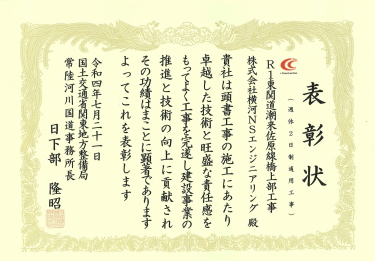 表彰状
(週休2日制適用工事)
R1東関道潮来佐原線橋上部工事
株式会社横河NSエンジニアリング 殿
貴社は頭書工事の施工にあたり
卓越した技術と旺盛な責任感を
もってよく工事を完遂し建設事業の
推進と技術の向上に貢献され
その功績はまことに顕著であります
よってこれを表彰します
令和四年七月二十一日
国土交通省関東地方整備局
常陸河川国道事務所長
日下部 隆昭